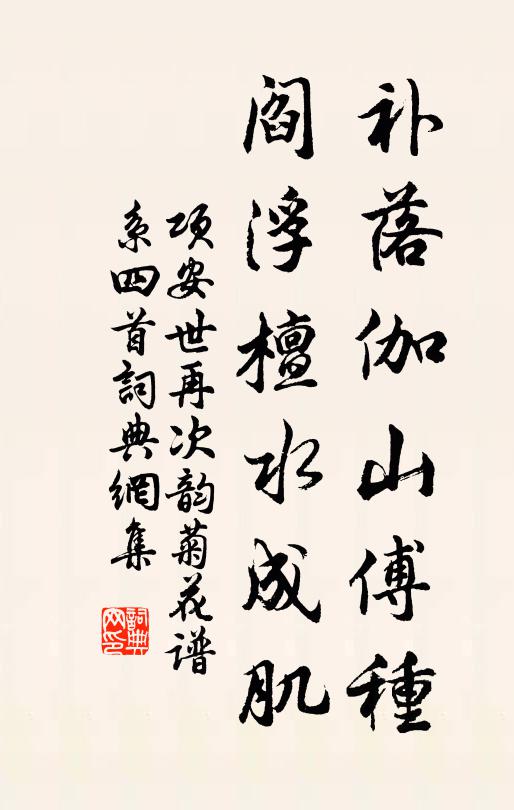 补落伽山傅種
阎浮檀水成肌
项安世再次韵菊花谱
系四首詞典網集
詞典网印